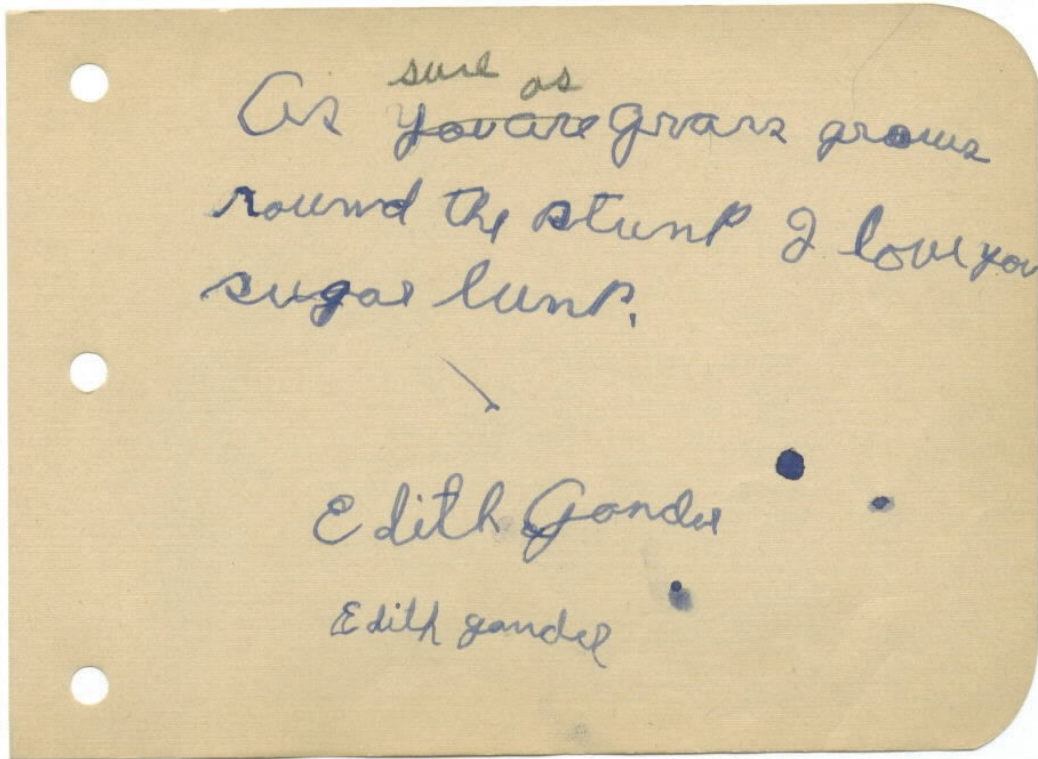 sure as
As you are Grass grows
round the stunp I love you
sugar lunp.
Edith Gander
Edith gander